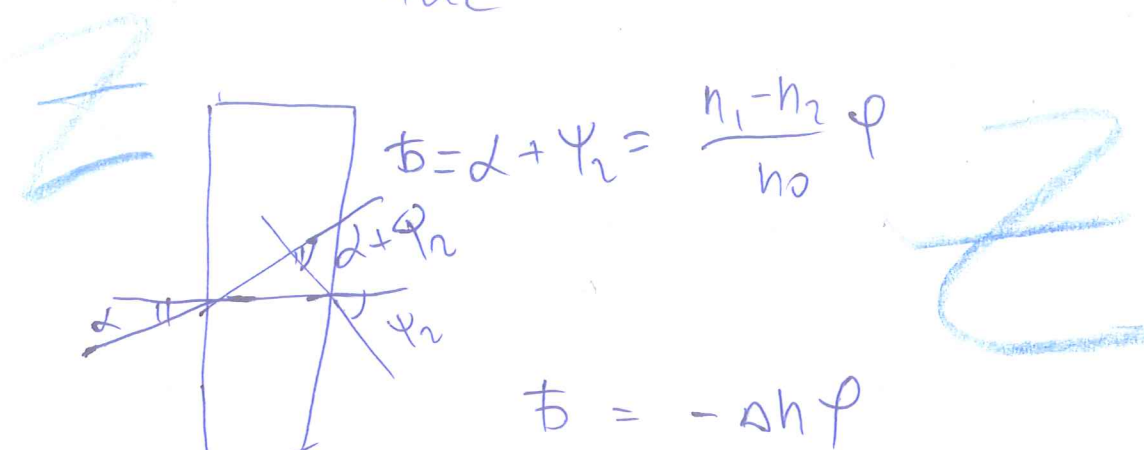 ъ = α + ψ₂ = (n₁ - n₂)/n₀ φ
α + φ₂
α
ψ₂
ъ = - Δn φ